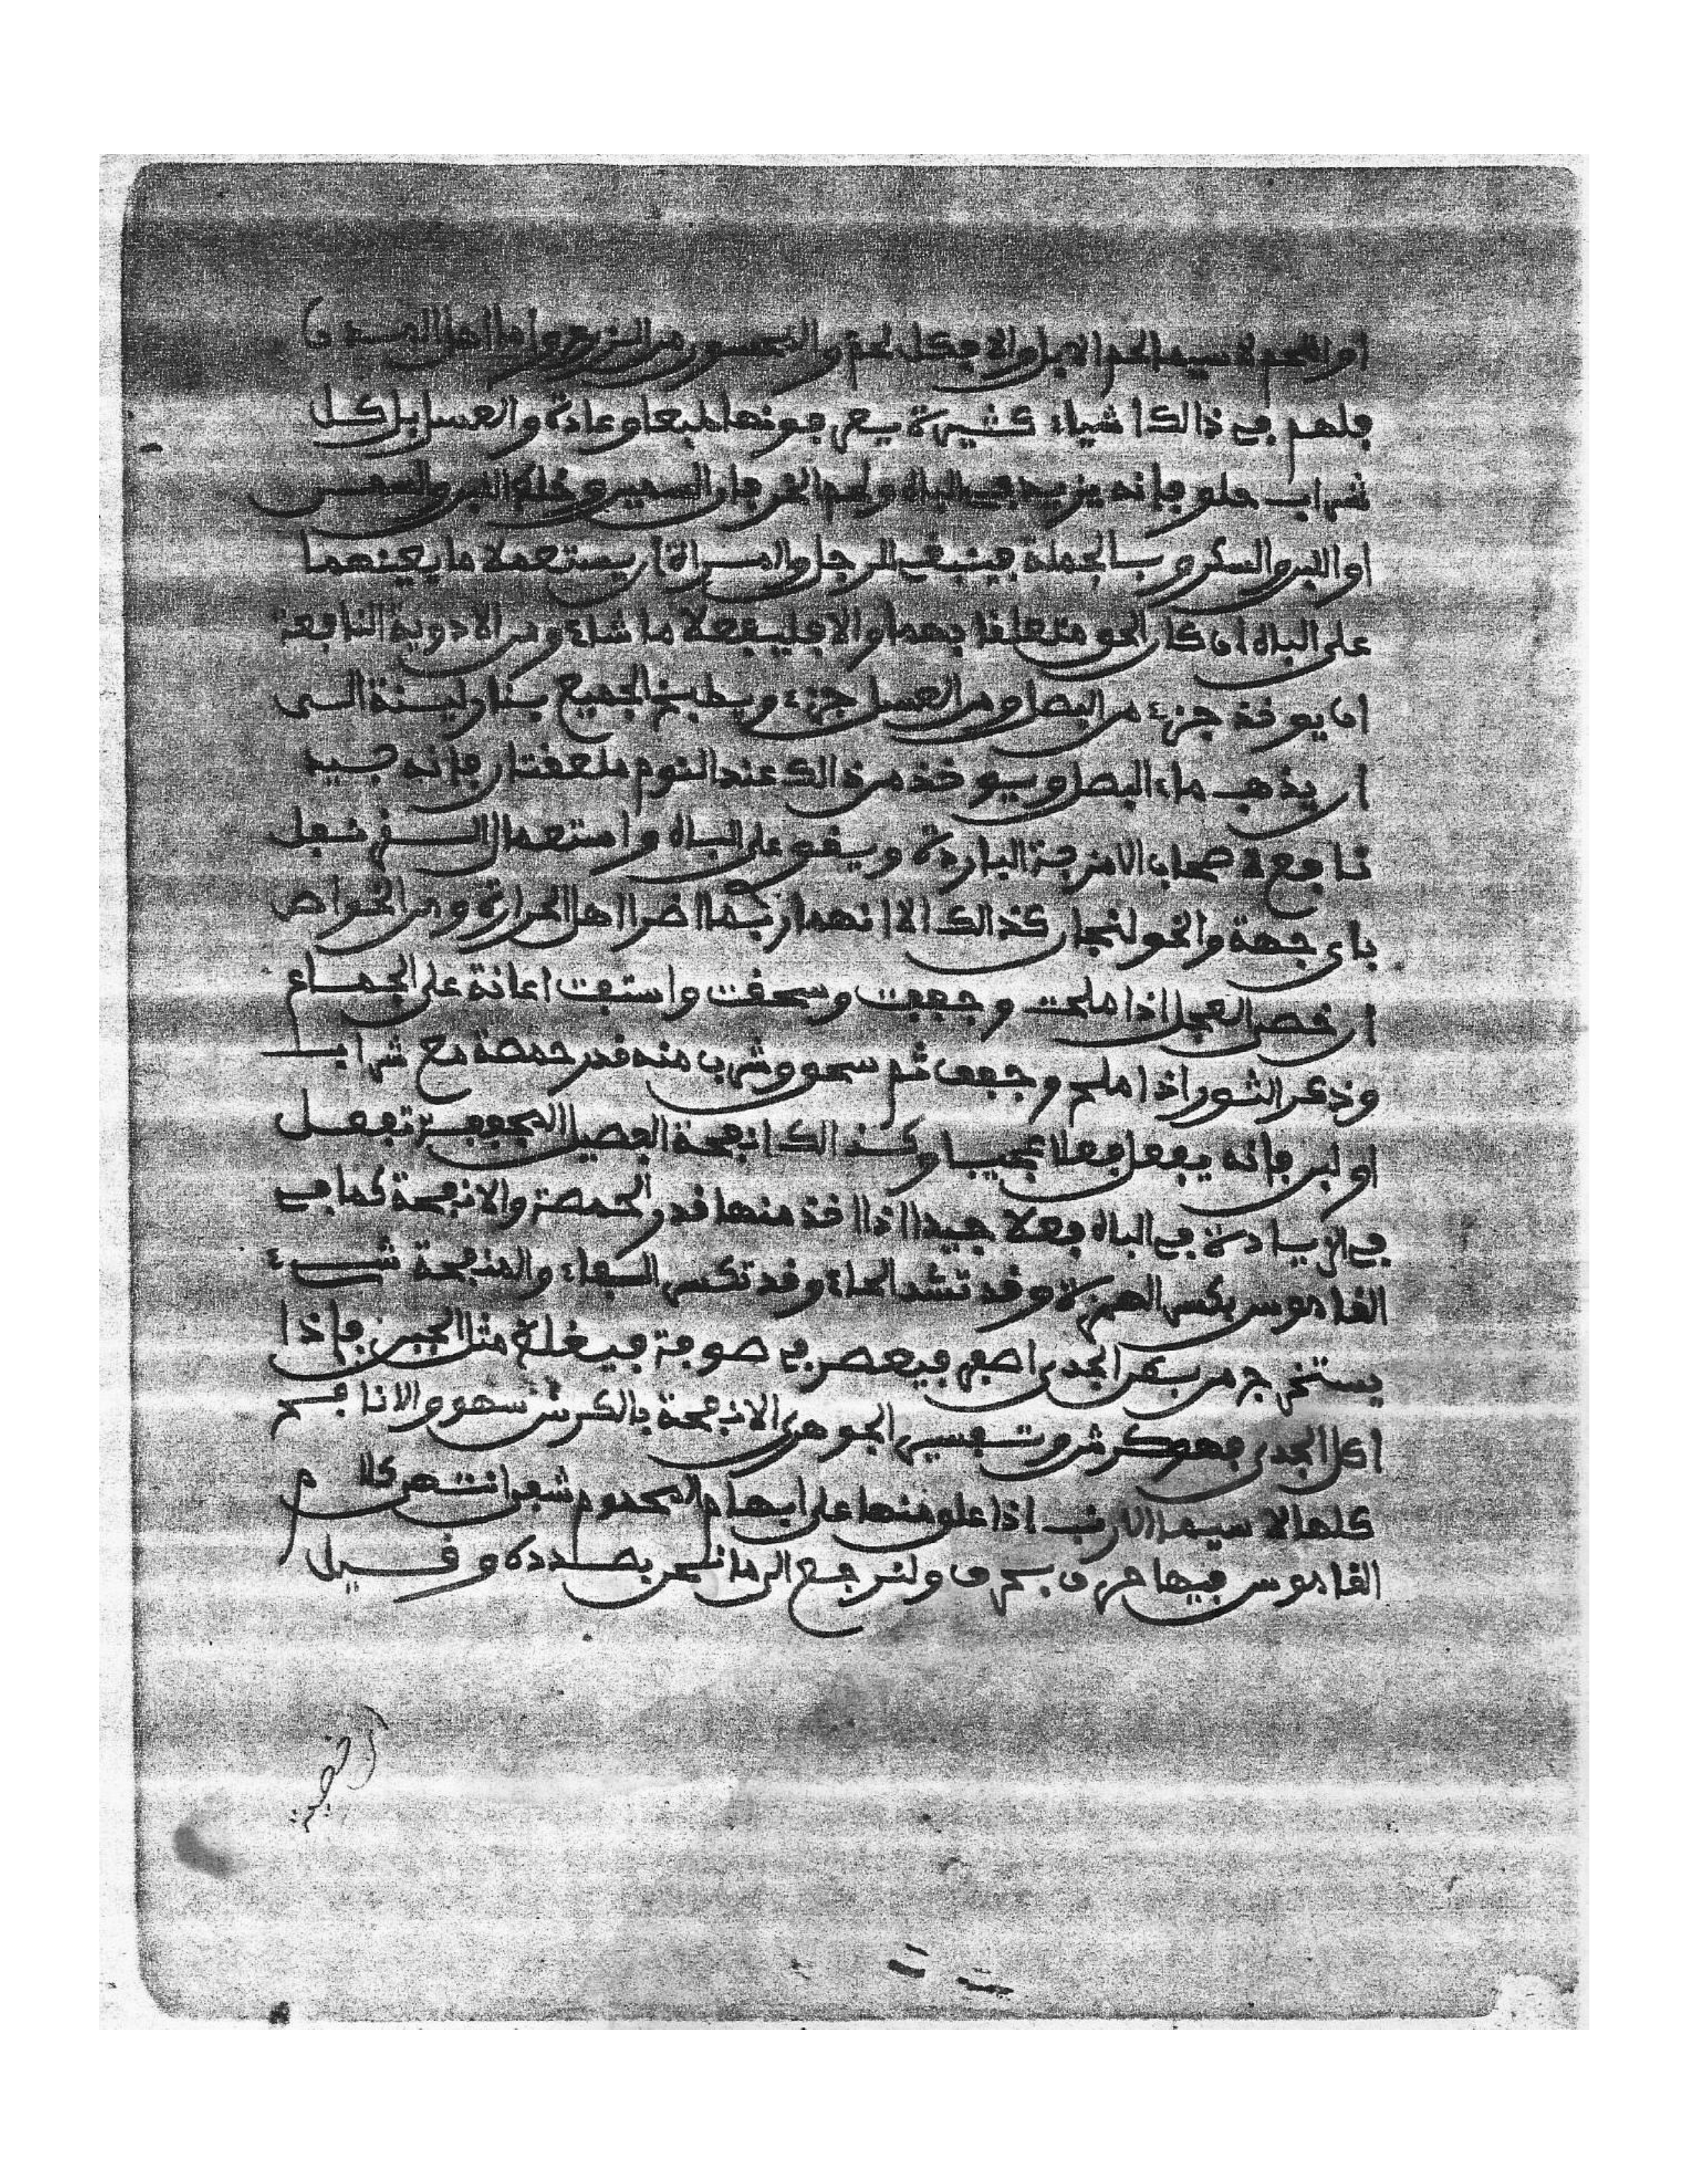 او اللحم لا سيما لحم الابل والا فكل لحم والتحسور من الزروع واما اهل المدن
فلهم في ذالك اشياء كثيرة يعرفونها طبعا وعادة والعسل بل كل
شراب حلو فإنه يزيد في الباه ولحم الخرفان السمين وخله التمر والسمن
او اللبن والسكر وبالجملة فينبغي للرجل والمراة ان يستعملا ما يعينهما
على الباه ان كان الحق متعلقا بهما والا فليفعلا ما شاء ومن الادوية النافعة
ان يوخذ جزء من البصل ومن العسل جزء ويطبخ الجميع بنار لينة الى
ان يذهب ماء البصل ويوخذ من ذالك عند النوم ملعقتان فإنه جيد
نافع لاصحاب الامزجة الباردة ويقوي على الباه واستعمال القرنفل
باي جهة والخولنجان كذالك الا انهما ربما اضرا اهل الحرارة ومن الخواص
ان خصى العجل اذا ملحت وجففت وسحقت واستفت اعانة على الجماع
وذكر الثور اذا ملح وجفف ثم سحق وشرب منه قدر حمصة مع شراب
او لبن فإنه يفعل فعلا عجيبا وكذالك انفحة الفصيل المجففة تفعل
في الزيادة في الباه فعلا جيدا اذا اخذ منها قدر الحمصة والانفحة كما في
القاموس بكسر الهمزة وقد تشد الحاء وقد تكسر الفاء والمنفحة شيء
يستخرج من بطن الجدي اصفر فيعصر في صوفة فيغلظ مثل الجبن فإذا
اكل الجدي فهو كرش وتفسير الجوهري الانفحة بالكرش سهو والانافح
كلها لا سيما الارنب اذا علق منها على ابهام المحموم شفي انتهى كلام
القاموس فيها حرفا بحرف ولنرجع الى ما نحن بصدده وقيل
ان خصية